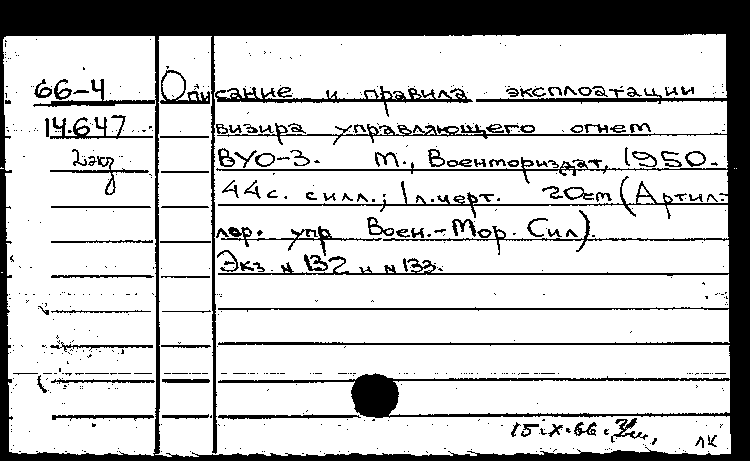 66-4
14.647
2 экз
Описание и правила эксплоатации
визира управляющего огнем
ВУО-3. М., Военмориздат, 1950.
44с. силл.; 1л.черт. 20см (Артил-
лер. упр Воен.-Мор. Сил)
Экз N 132 и N 133.
15.X.66.
ЛК